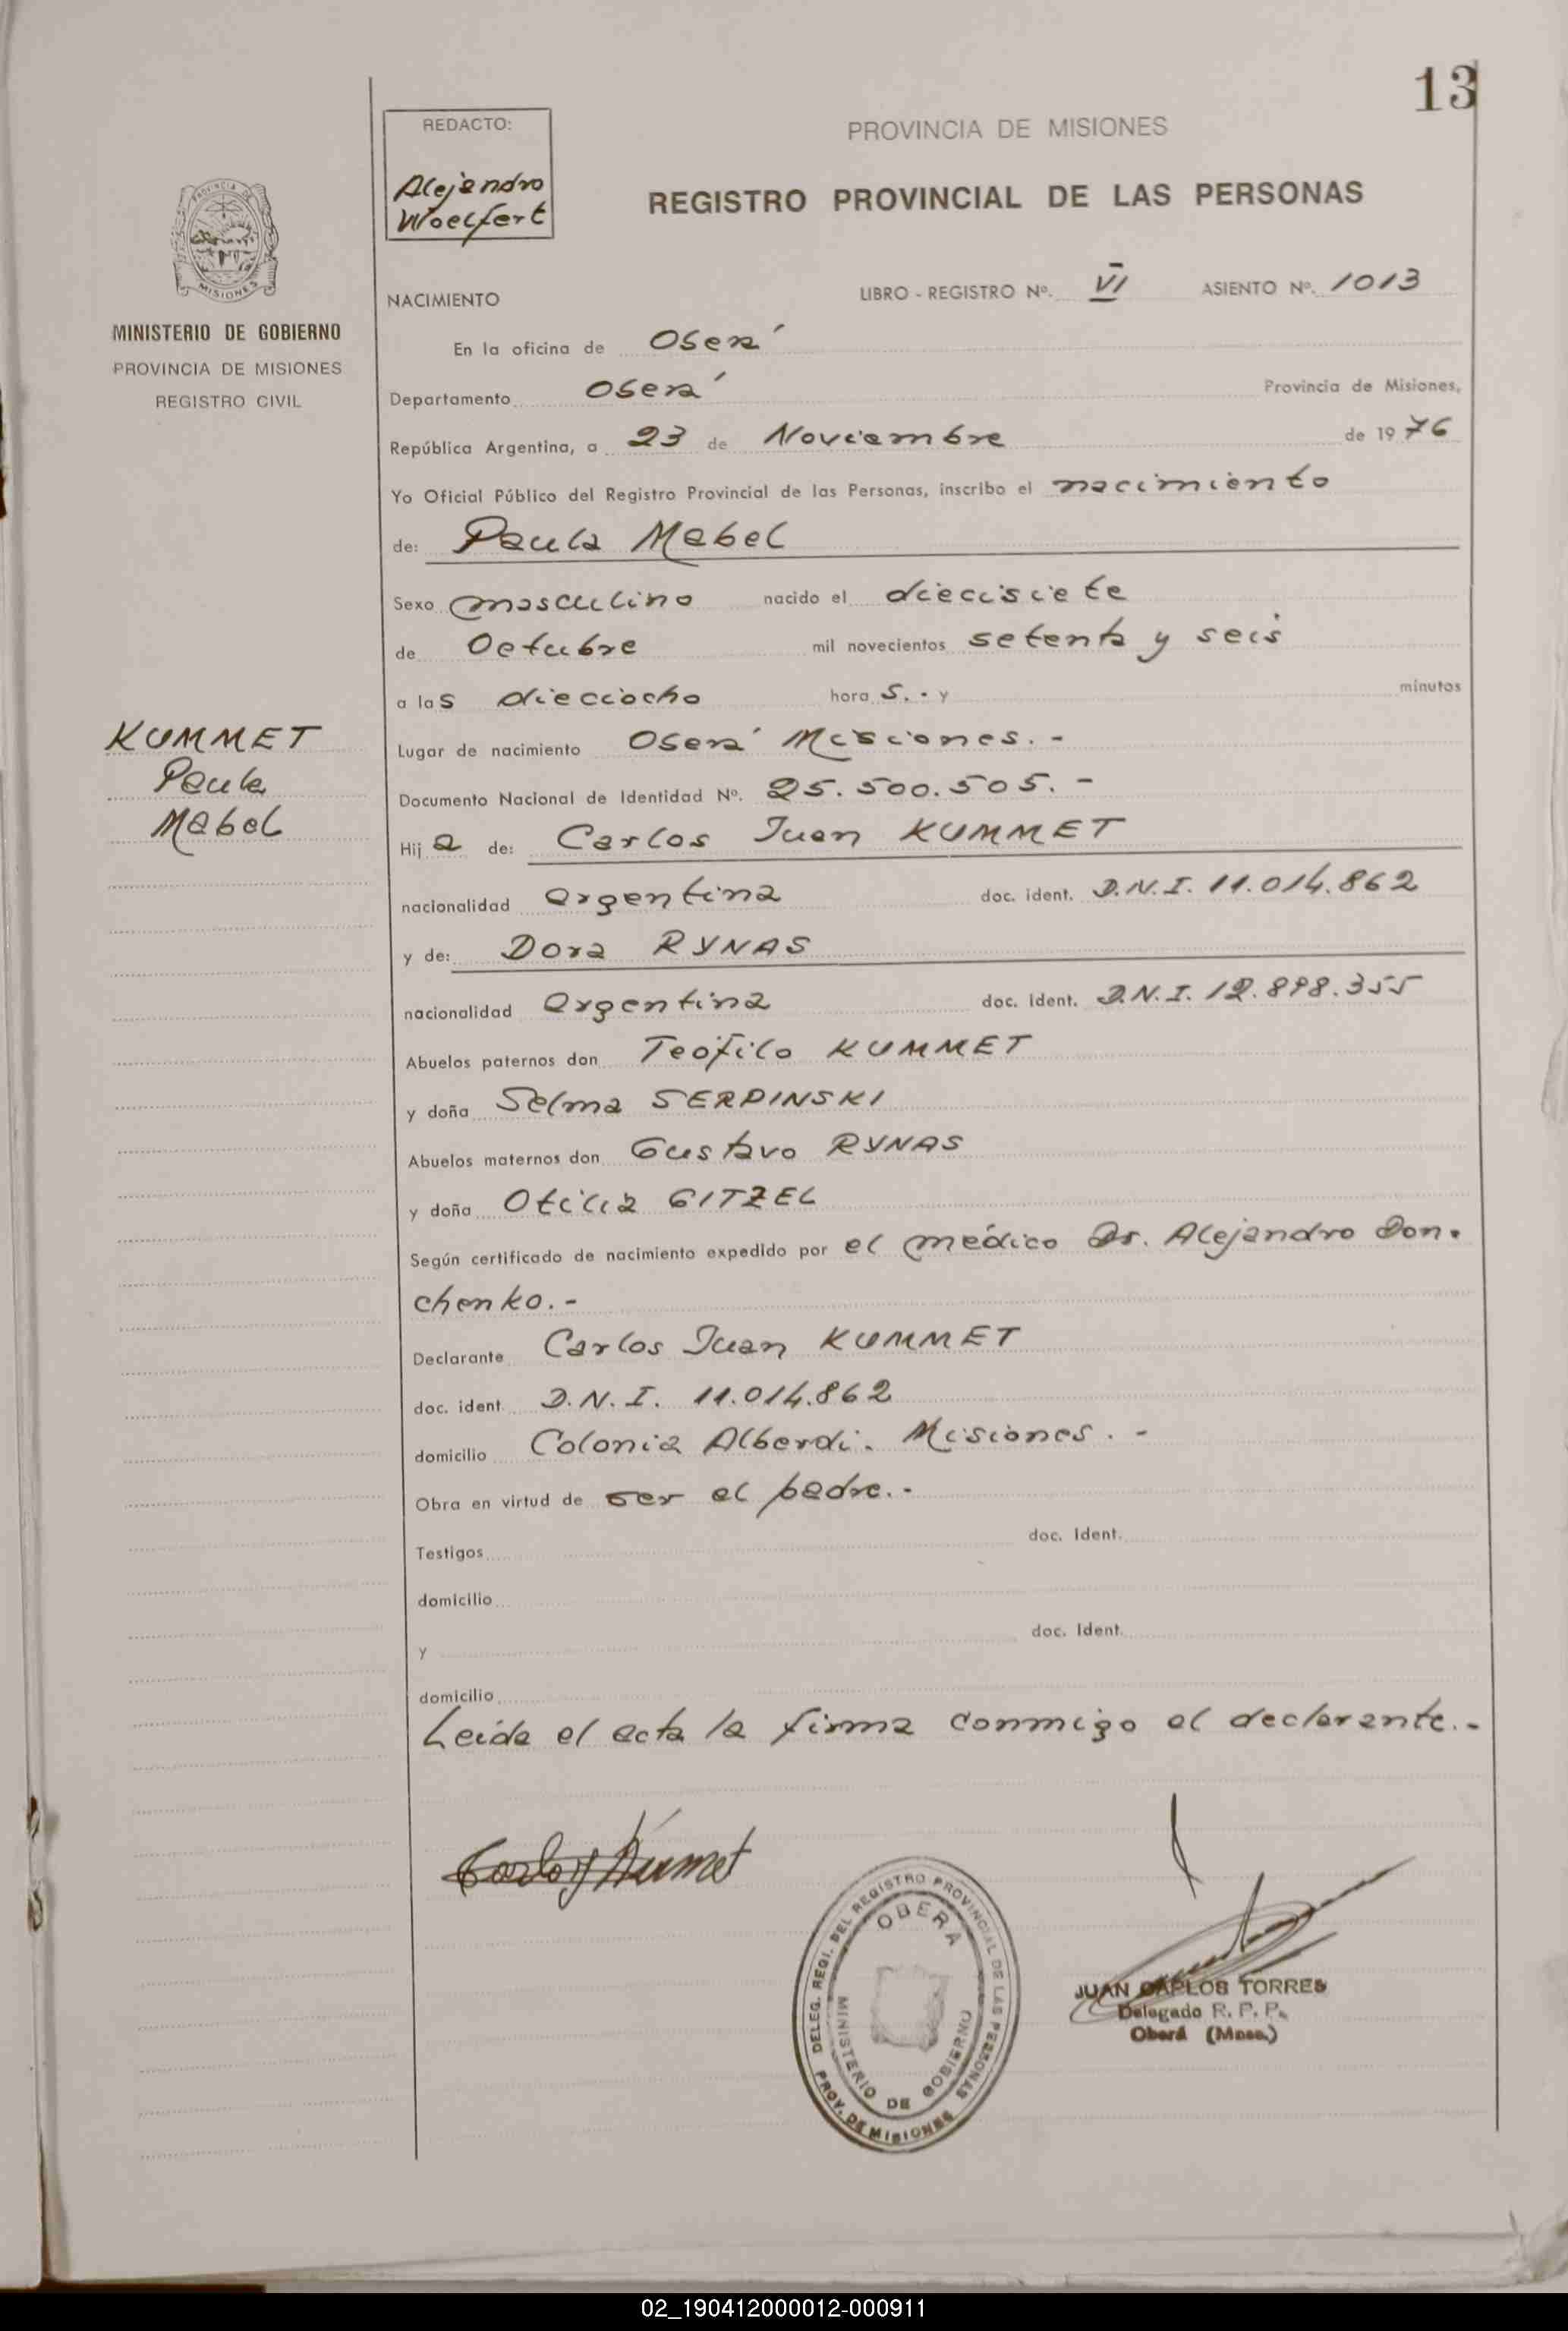 13
REDACTO:
Alejandro
Woelfert
PROVINCIA DE MISIONES
REGISTRO PROVINCIAL DE LAS PERSONAS
PROVINCIA DE
MISIONES
MINISTERIO DE GOBIERNO
PROVINCIA DE MISIONES
REGISTRO CIVIL
NACIMIENTO LIBRO - REGISTRO Nº. VI ASIENTO Nº. 1013
En la oficina de Oberá
Departamento Oberá Provincia de Misiones,
República Argentina, a 23 de Noviembre de 1976
Yo Oficial Público del Registro Provincial de las Personas, inscribo el nacimiento
de: Paula Mabel
Sexo masculino nacido el diecisiete
de Octubre mil novecientos setenta y seis
a las dieciocho horas.- y minutos
KUMMET
Paula
Mabel
Lugar de nacimiento Oberá Misiones.-
Documento Nacional de Identidad Nº. 25.500.505.-
Hija de: Carlos Juan KUMMET
nacionalidad argentina doc. ident. D.N.I. 11.014.862
y de: Dora RYNAS
nacionalidad argentina doc. ident. D.N.I. 12.898.355
Abuelos paternos don Teófilo KUMMET
y doña Selma SERPINSKI
Abuelos maternos don Gustavo RYNAS
y doña Otilia GITZEL
Según certificado de nacimiento expedido por el médico Dr. Alejandro Don-
chenko.-
Declarante Carlos Juan KUMMET
doc. ident. D.N.I. 11.014.862
domicilio Colonia Alberdi. Misiones.-
Obra en virtud de ser el padre.-
Testigos doc. Ident.
domicilio
y doc. Ident.
domicilio
Leida el acta la firma conmigo el declarante.-
Carlos J Kumet
DELEG. REGI. DEL REGISTRO PROVINCIAL DE LAS PERSONAS
OBERA
MINISTERIO DE GOBIERNO
PROV. DE MISIONES
JUAN CARLOS TORRES
Delegado R. P. P.
Oberá (Mnes.)
02_190412000012-000911